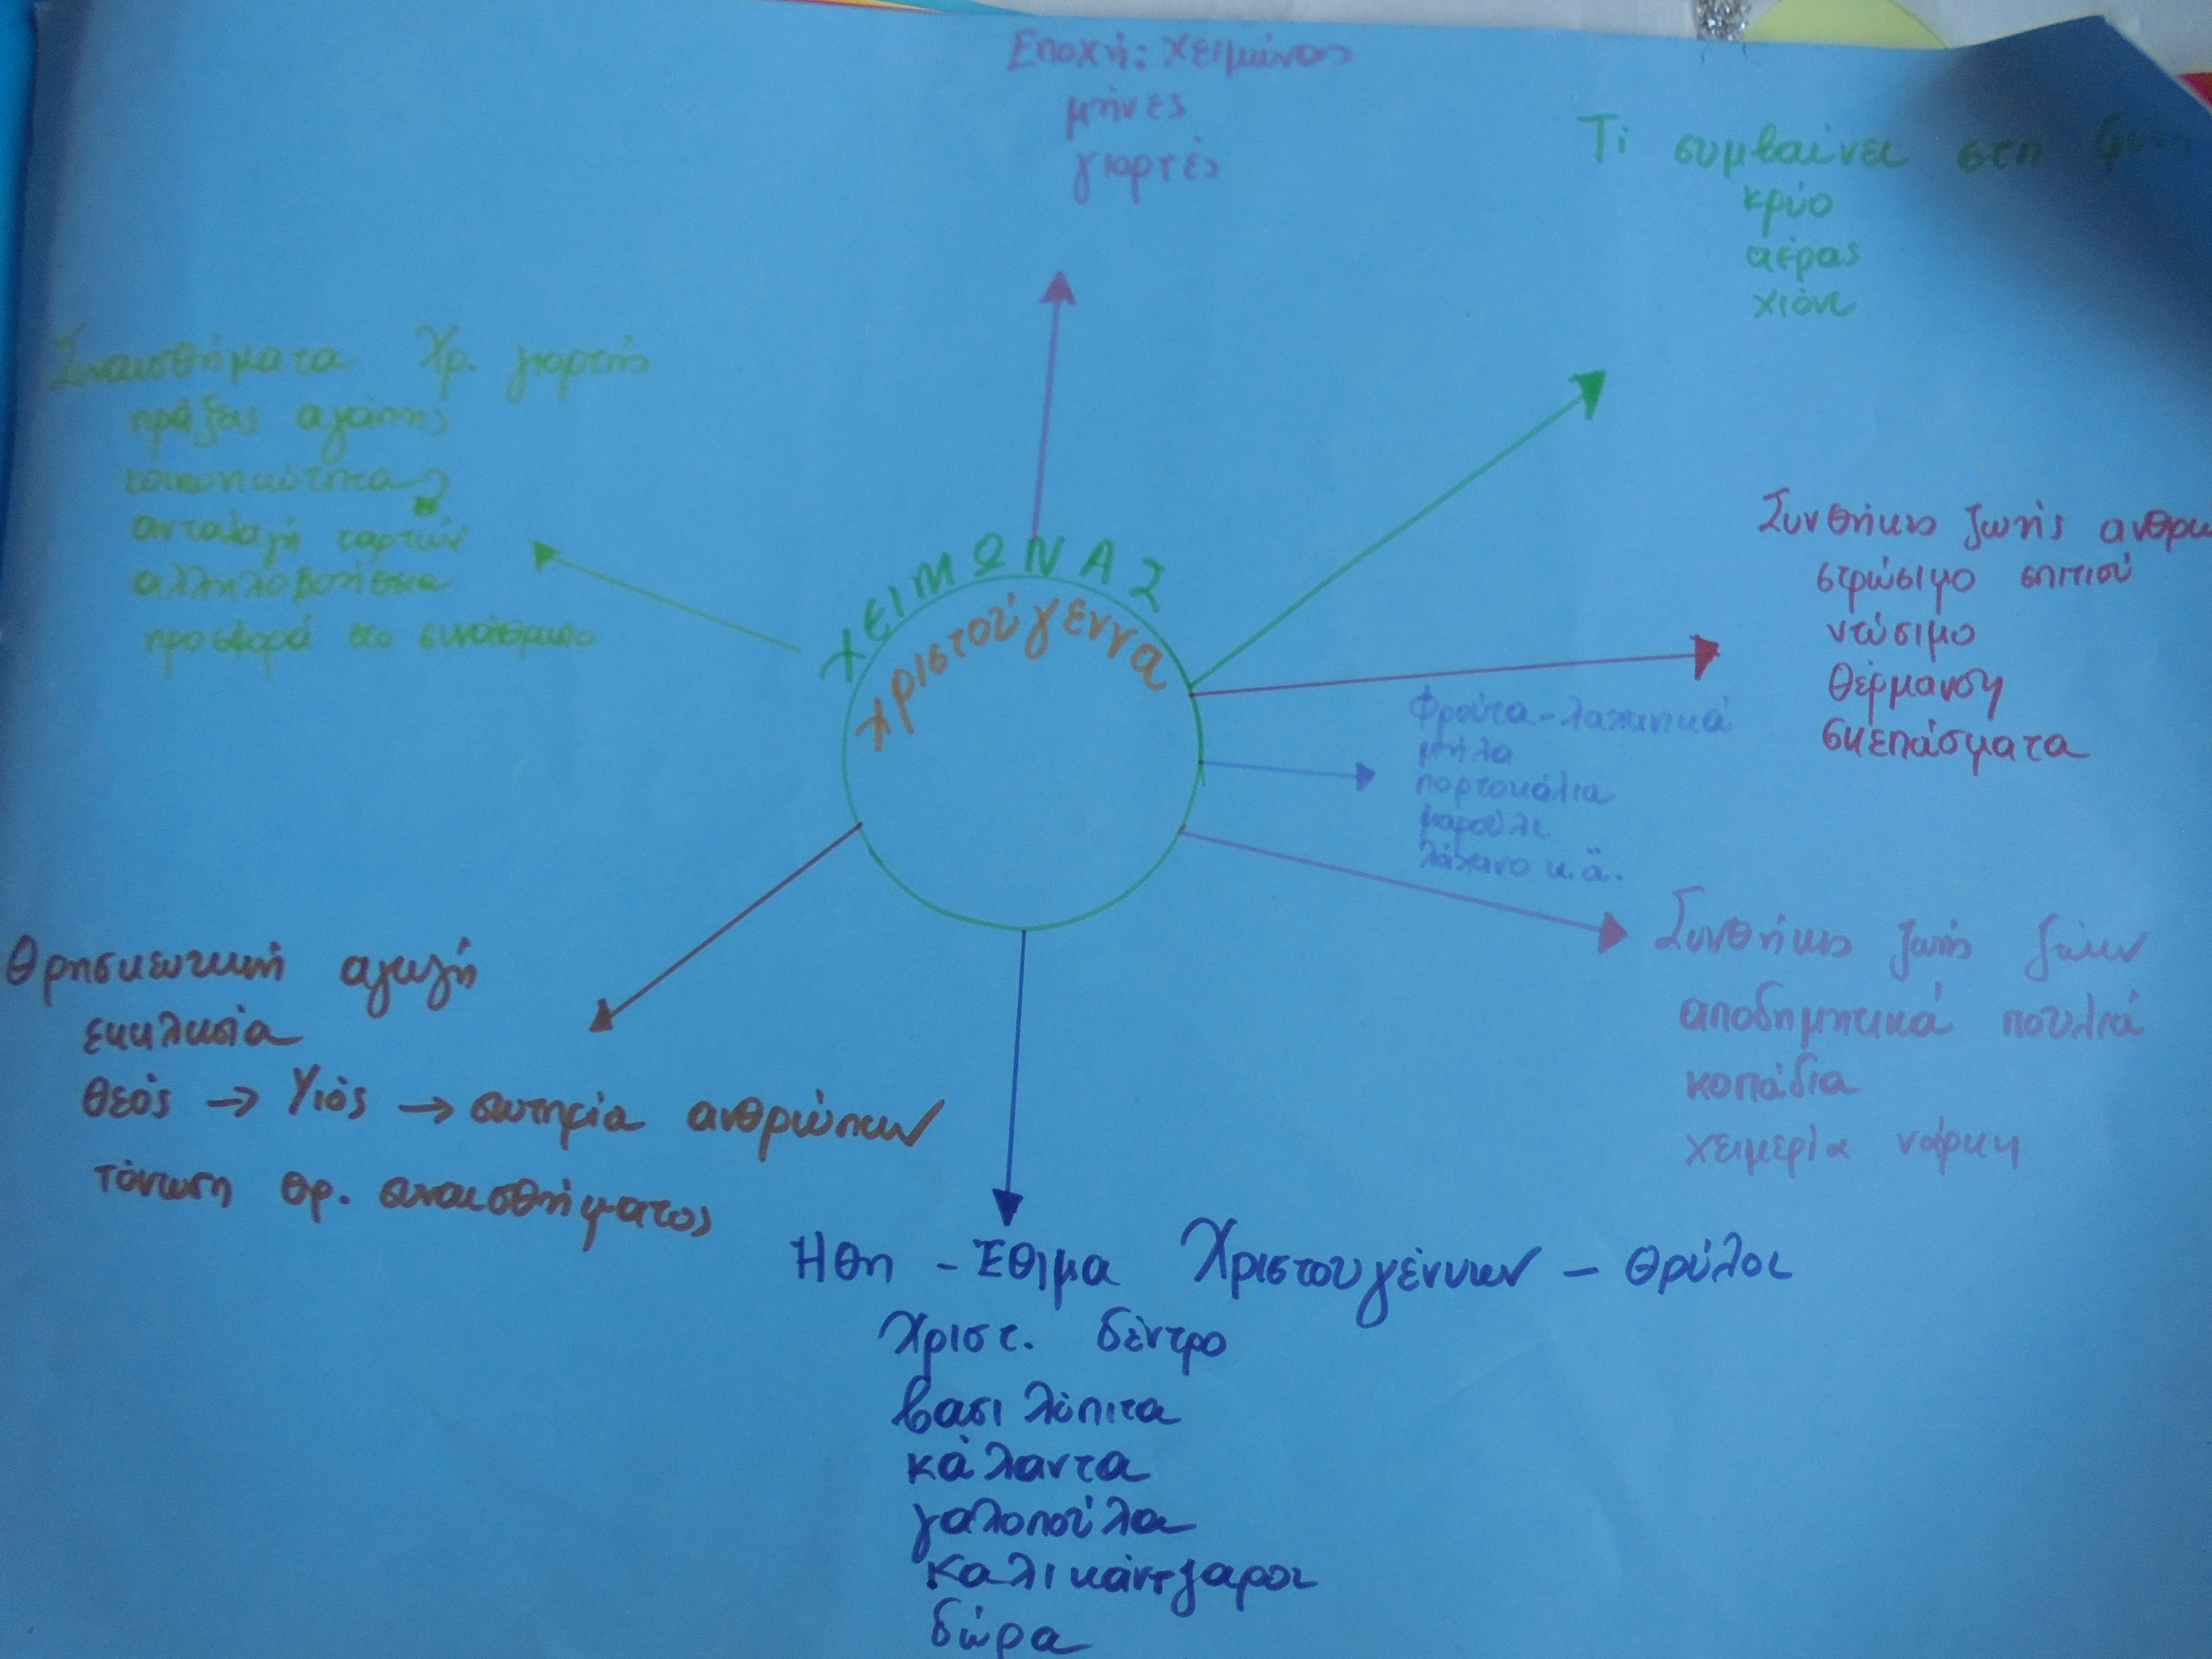 Εποχή: χειμώνας
μήνες
γιορτές
Τι συμβαίνει στη
κρύο
αέρας
χιόνι
Συναισθήματα Χρ. γιορτής
πράξεις αγάπης
κοινωνικότητα
ανταλαγή καρτών
αλληλοβοήθεια
προσφορά στο συνάνθρωπο
ΧΕΙΜΩΝΑΣ
Χριστούγεννα
Συνθήκες ζωής
στρώσιμο σπιτιού
ντύσιμο
θέρμανση
σκεπάσματα
Φρούτα-λαχανικά
μήλα
πορτοκάλια
μαρούλι
λάχανο κ.ά.
Συνθήκες ζωής ζώων
αποδημητικά πουλιά
κοπάδια
χειμερία νάρκη
Θρησκευτική αγωγή
εκκλησία
Θεός → Υιός → σωτηρία ανθρώπων
τόνωση θρ. συναισθήματος
Ήθη - Έθιμα Χριστουγέννων - θρύλοι
Χριστ. δέντρο
βασιλόπιτα
κάλαντα
γαλοπούλα
Καλικάντζαροι
δώρα